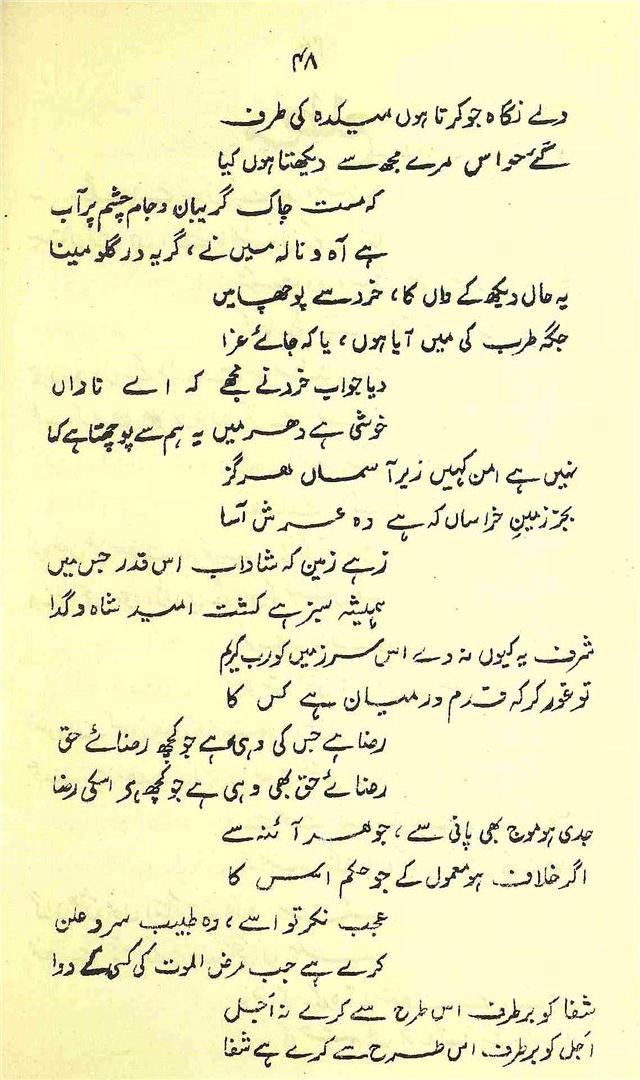 ۴۸
ولے نگاہ جو کرتا ہوں میکدہ کی طرف
گئے حواس مرے مجھ سے دیکھتا ہوں کیا
کہ مست چاک گریبان و جام چشم پر آب
ہے آہ و نالہ میں نے، گریہ در گلو مینا
یہ حال دیکھ کے واں کا، خرد سے پوچھا میں
جگہ طرب کی میں آیا ہوں، یا کہ جائے عزا
دیا جواب خرد نے مجھے کہ اے ناداں
خوشی ہے دھر میں یہ ہم سے پوچھتا ہے کیا
نہیں ہے امن کہیں زیر آسماں ہرگز
بجز زمینِ خراساں کہ ہے وہ عرش آسا
زہے زمین کہ شاداب اس قدر جس میں
ہمیشہ سبز ہے کشت امید شاہ و گدا
شرف یہ کیوں نہ دے اس سرزمیں کو رب کریم
تو غور کر کہ قدم درمیان ہے کس کا
رضا ہے جس کی وہی ہے جو کچھ رضائے حق
رضائے حق بھی وہی ہے جو کچھ ہو اسکی رضا
جدی ہو موج بھی پانی سے، جوھر آئنہ سے
اگر خلاف ہو معمول کے جو حکم اس کا
عجب نکر تو اسے، وہ طبیب سر و علن
کرے ہے جب مرض الموت کی کسی کے دوا
شفا کو برطرف اس طرح سے کرے نہ اَجل
اَجل کو برطرف اس طرح سے کرے ہے شفا